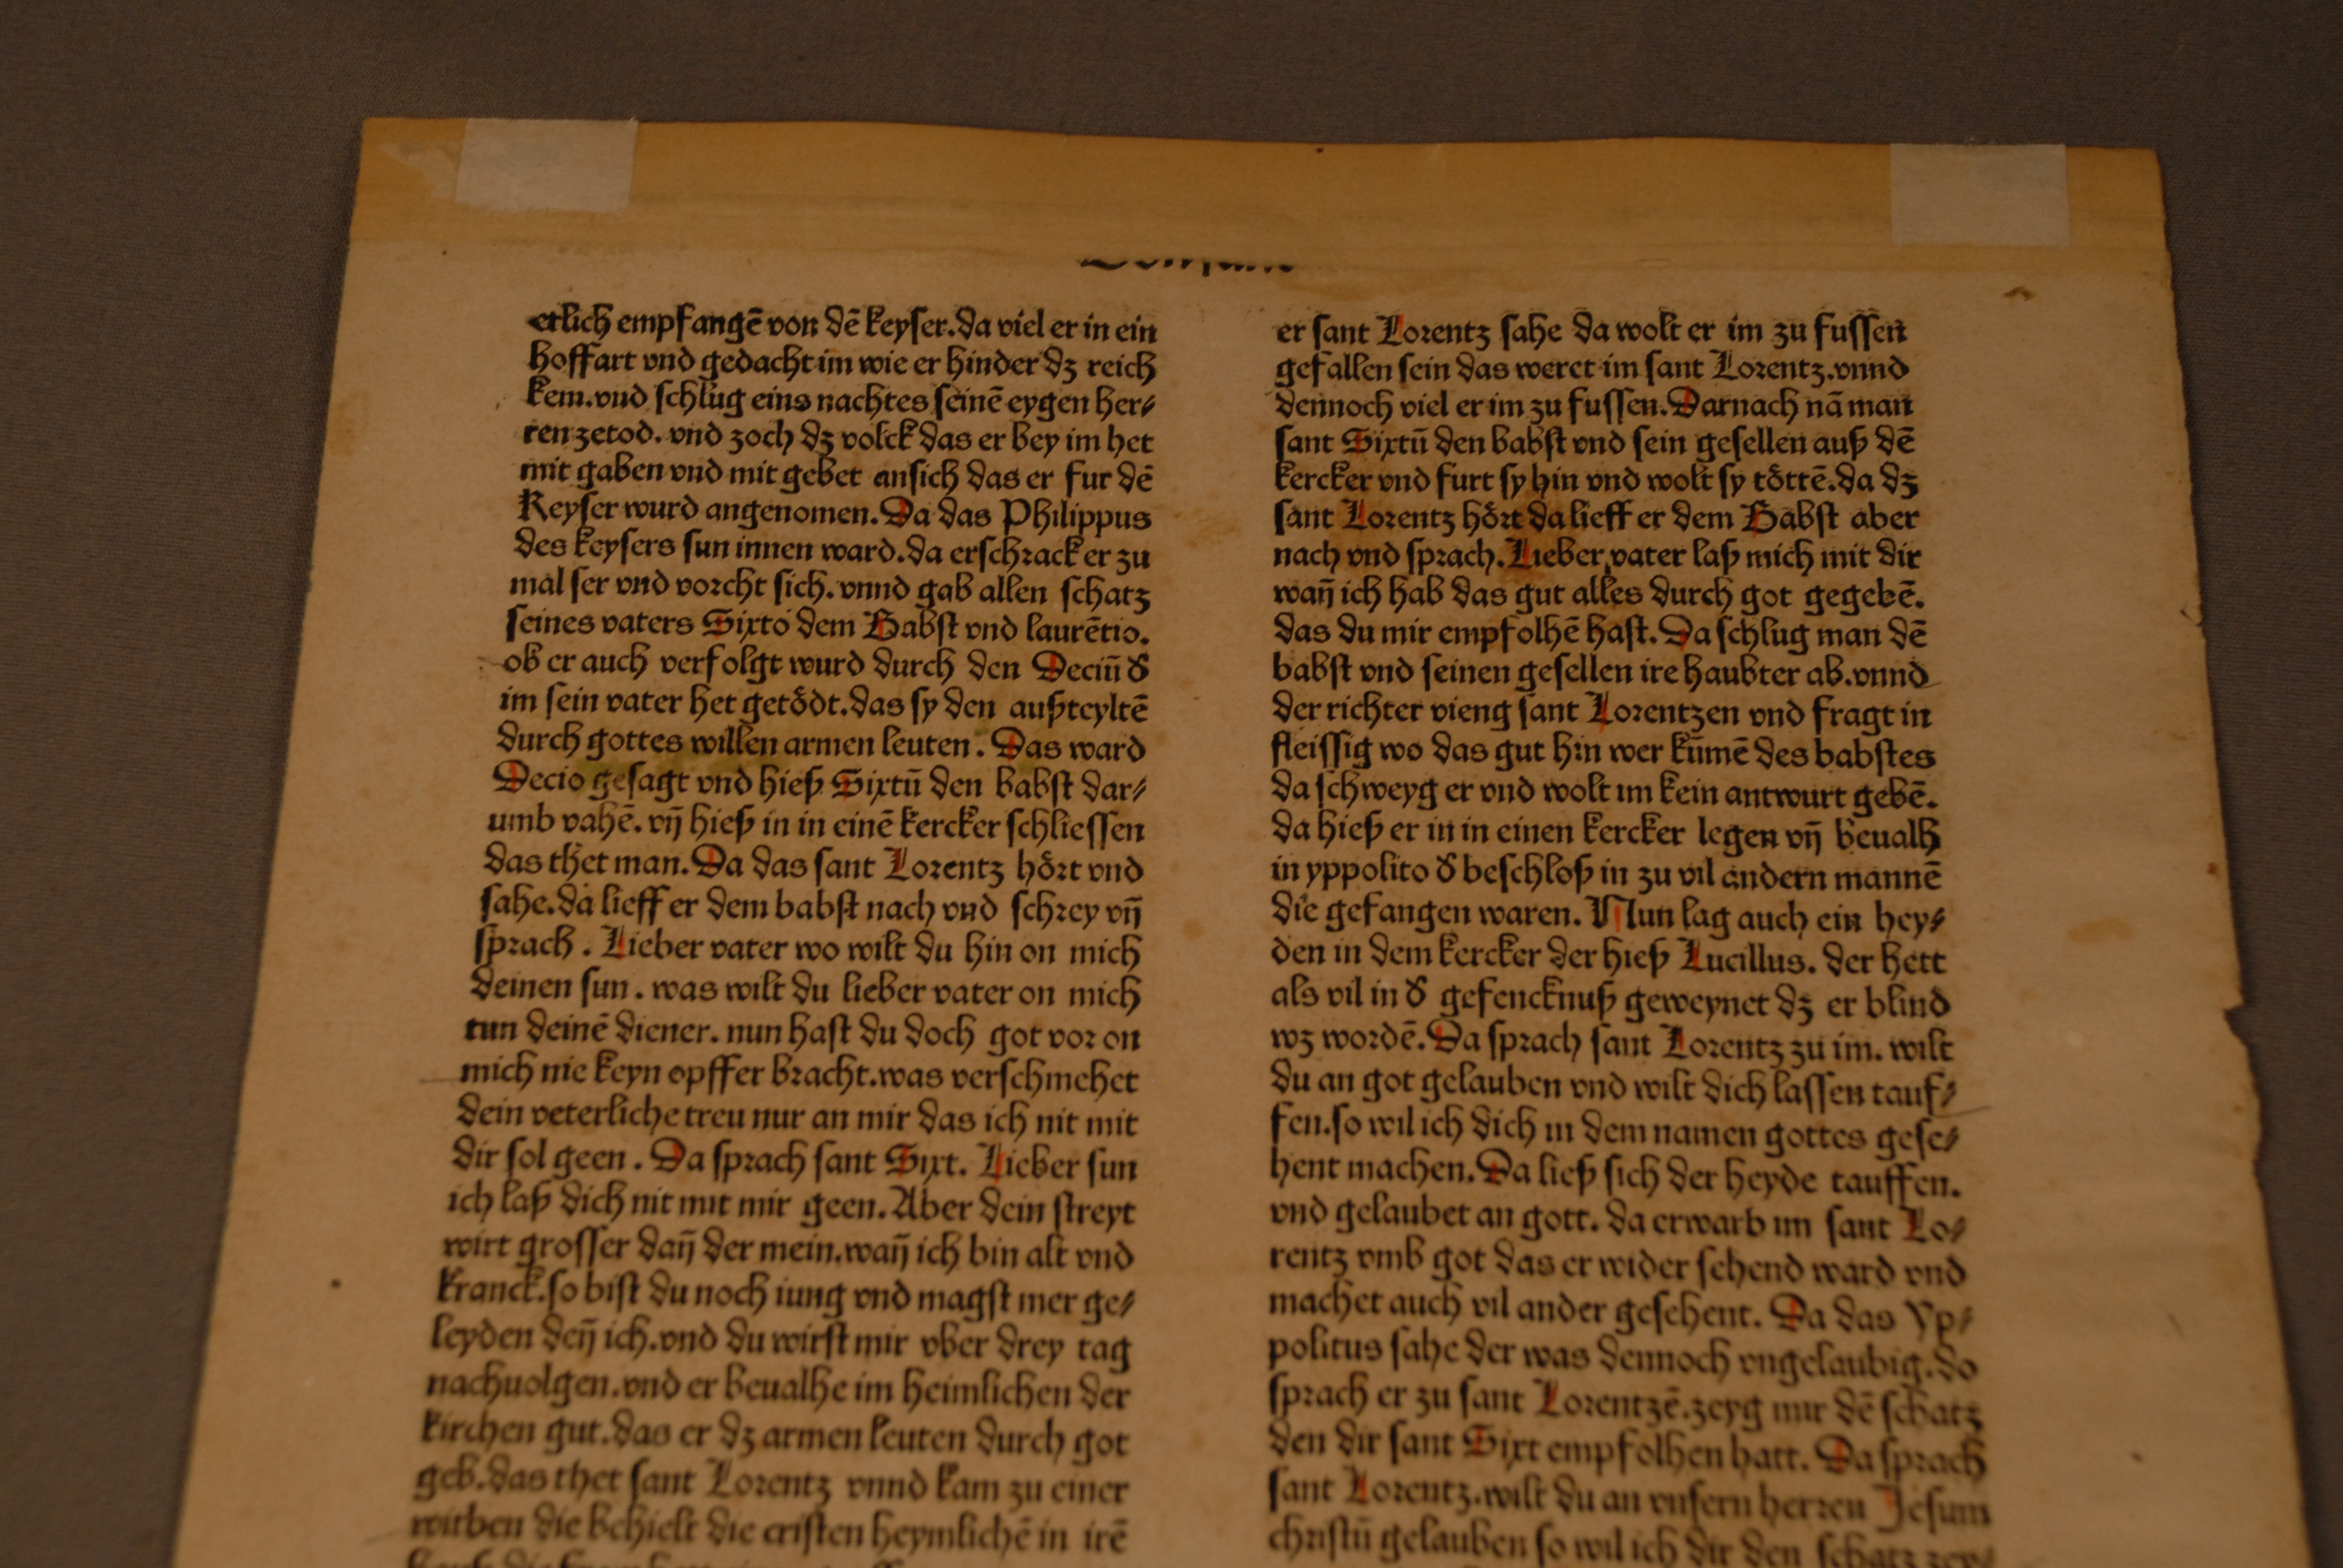 etlich empfangē von dē keyser.da viel er in ein
hoffart vnd gedacht im wie er hinder dʒ reich
kem.vnd schlug eins nachtes seinē eygen her⸗
ren zetod. vnd zoch dʒ volck das er bey im het
mit gaben vnd mit gebet ansich das er fur dē
Keyser wurd angenomen.Da das Philippus
des keysers sun innen ward.da erschrack er zu
mal ser vnd vorcht sich.vnnd gab allen schatz
seines vaters Sixto dem Babst vnd laurētio.
ob er auch verfolgt wurd durch den Deciū ď
im sein vater het getödt.das sy den außteyltē
durch gottes willen armen leuten. Das ward
Decio gesagt vnd hieß Sixtū den babst dar⸗
umb vahē. vn̄ hieß in in einē kercker schliessen
das thet man.Da das sant Lorentz hört vnd
sahe.da lieff er dem babst nach vnd schrey vn̄
sprach. Lieber vater wo wilt du hin on mich
deinen sun. was wilt du lieber vater on mich
tun deinē diener. nun hast du doch got vor on
mich nie keyn opffer bracht.was verschmehet
dein veterliche treu nur an mir das ich nit mit
dir sol geen. Da sprach sant Sixt. Lieber sun
ich laß dich nit mit mir geen.Aber dein streyt
wirt grosser dan̄ der mein.wan̄ ich bin alt vnd
kranck.so bist du noch iung vnd magst mer ge⸗
leyden den̄ ich.vnd du wirst mir vber drey tag
nachuolgen.vnd er beualhe im heimlichen der
kirchen gut.das er dʒ armen leuten durch got
geb.das thet sant Lorentz vnnd kam zu einer
witben die behielt die cristen heymlichē in irē
er sant Lorentz sahe da wolt er im zu fussen
gefallen sein das weret im sant Lorentz.vnnd
dennoch viel er im zu fussen.Darnach nā man
sant Sixtū den babst vnd sein gesellen auß dē
kercker vnd furt sy hin vnd wolt sy töttē.da dʒ
sant Lorentz hört da lieff er dem Babst aber
nach vnd sprach.Lieber vater laß mich mit dir
wan̄ ich hab das gut alles durch got gegebē.
das du mir empfolhē hast.Da schlug man dē
babst vnd seinen gesellen ire haubter ab.vnnd
der richter vieng sant Lorentzen vnd fragt in
fleissig wo das gut hin wer kūmē des babstes
da schweyg er vnd wolt im kein antwurt gebē.
da hieß er in in einen kercker legen vn̄ beualh
in yppolito ď beschloß in zu vil andern mannē
die gefangen waren. Nun lag auch ein hey⸗
den in dem kercker der hieß Lucillus. der hett
als vil in ď gefencknuß geweynet dʒ er blind
wʒ wordē.Da sprach sant Lorentz zu im. wilt
du an got gelauben vnd wilt dich lassen tauf⸗
fen.so wil ich dich in dem namen gottes gese⸗
hent machen.Da ließ sich der heyde tauffen.
vnd gelaubet an gott. da erwarb im sant Lo⸗
rentz vmb got das er wider sehend ward vnd
machet auch vil ander gesehent. Da das Yp⸗
politus sahe der was dennoch vngelaubig.do
sprach er zu sant Lorentzē.zeyg mir dē schatz
den dir sant Sixt empfolhen hatt. Da sprach
sant Lorentz.wilt du an vnsern herren Jesum
christū gelauben so wil ich dir den schatz zey⸗